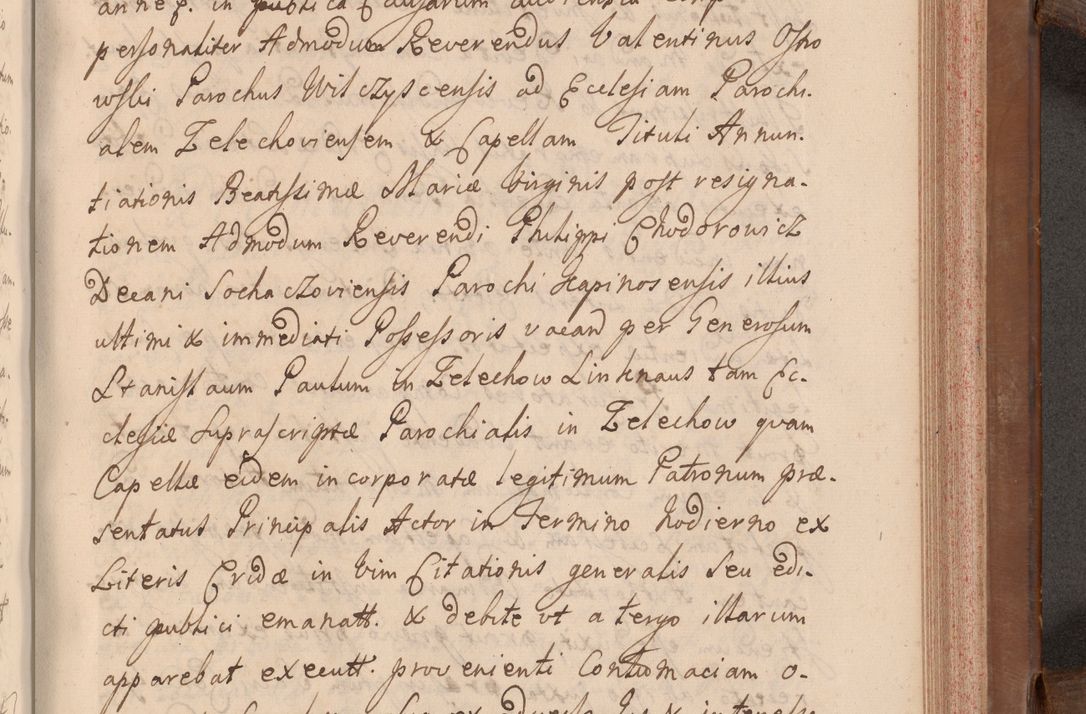 personaliter Admodum Reverendus Valentinus Ostro
wski Parochus Wilczyscensis ad Ecclesiam Parochi-
alem Zelechoviensem & Capellam Tituli Annun-
tiationis Beatissimæ Mariæ Virginis post resigna-
tionem Admodum Reverendi Philippi Chodorowicz
Decani Sochaczoviensis Parochi Kapinosensis illius
ultimi & immediati Possessoris vacand per Generosum
Stanislaum Paulum in Zelechow Linknaus tam Ec-
clesiæ suprascriptæ Parochialis in Zelechow quam
Capellæ eidem incorporatæ legitimum Patronum præ-
sentatus Principalis Actor in Termino hodierno ex
Literis Cridæ in vim Citationis generalis seu edi-
cti publici emanatt. & debite ut a tergo illarum
apparebat executt. provenienti Contumaciam o-